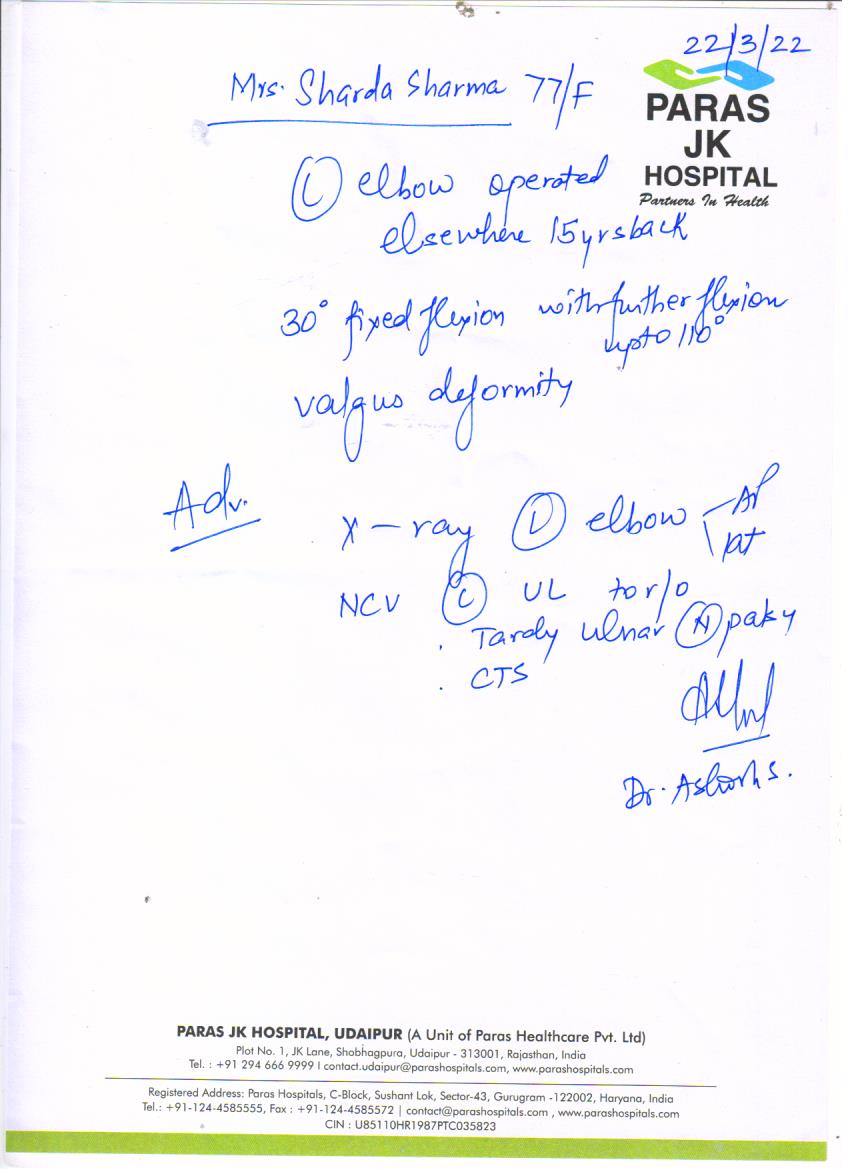 22/3/22
Mrs. Sharda Sharma 77/F
PARAS
JK
HOSPITAL
Partners In Health
Ⓛ elbow operated
elsewhere 15yrs back
30° fixed flexion with further flexion
upto 110°
valgus deformity
Adv.
X-ray Ⓛ elbow AP
Lat
NCV Ⓛ UL to r/o
. Tardy ulnar Ⓝ palsy
. CTS
Dr.
PARAS JK HOSPITAL, UDAIPUR (A Unit of Paras Healthcare Pvt. Ltd)
Plot No. 1, JK Lane, Shobhagpura, Udaipur - 313001, Rajasthan, India
Tel. : +91 294 666 9999 | contact.udaipur@parashospitals.com, www.parashospitals.com
Registered Address: Paras Hospitals, C-Block, Sushant Lok, Sector-43, Gurugram -122002, Haryana, India
Tel.: +91-124-4585555, Fax : +91-124-4585572 | contact@parashospitals.com , www.parashospitals.com
CIN : U85110HR1987PTC035823